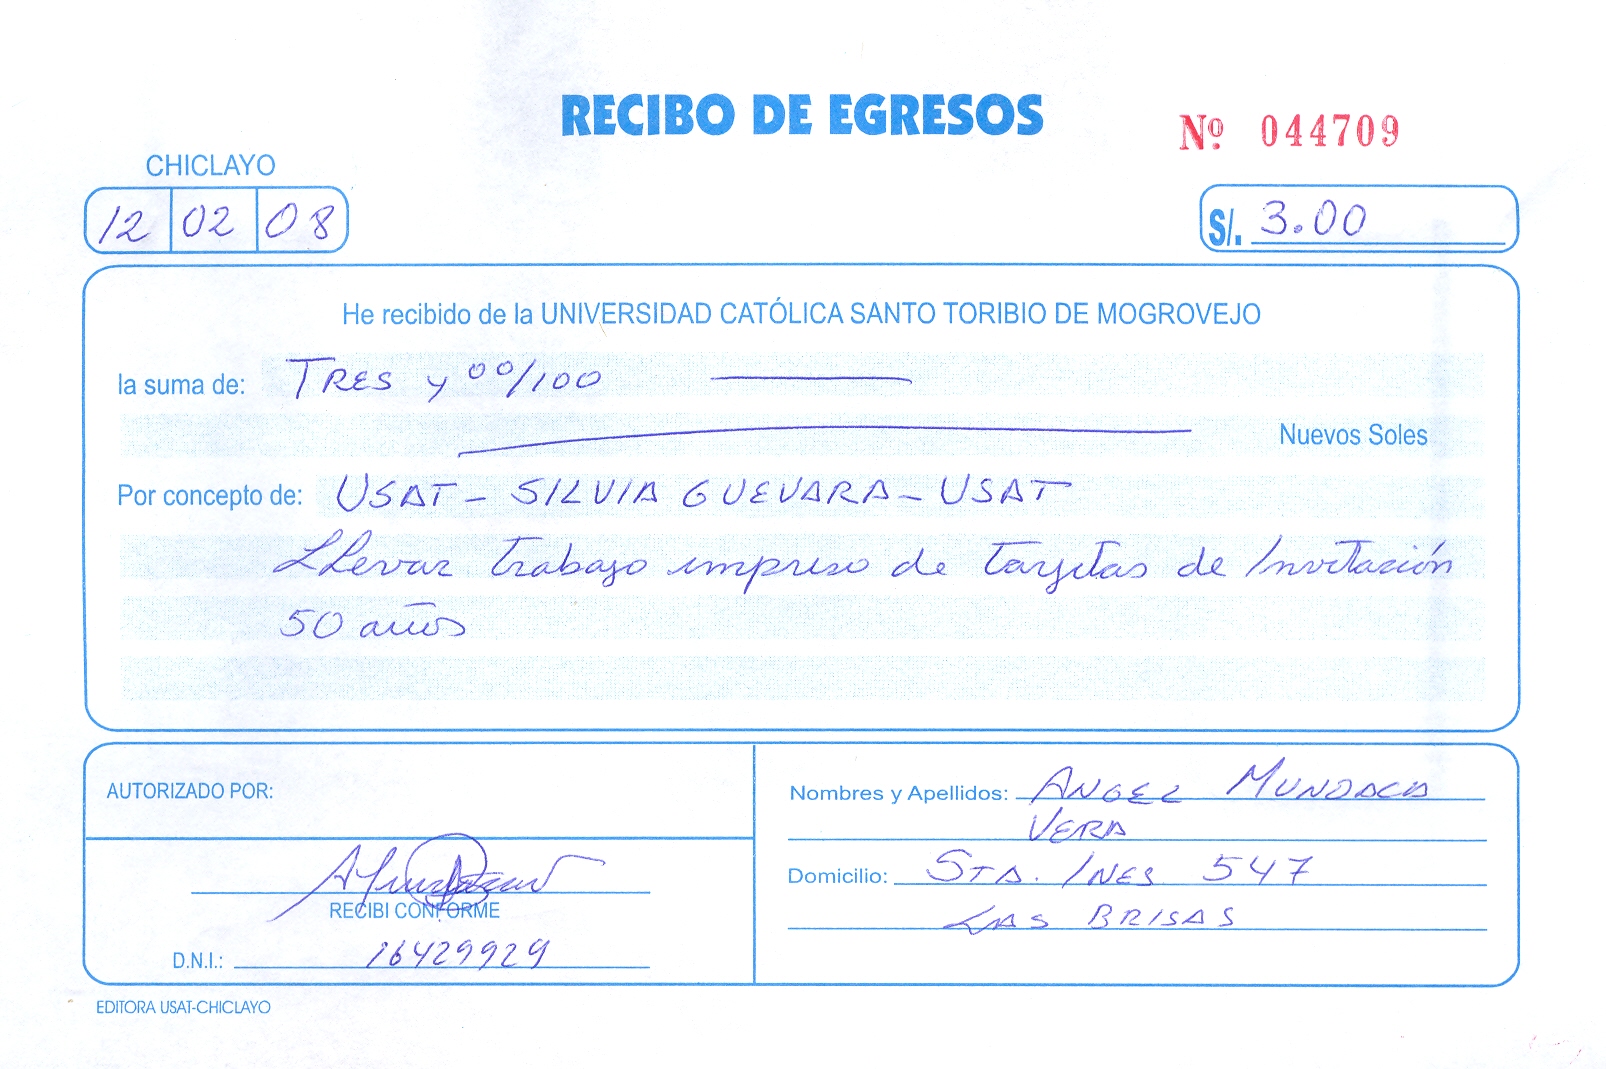 RECIBO DE EGRESOS
Nº 044709
CHICLAYO
12 02 08
S/. 3.00
He recibido de la UNIVERSIDAD CATÓLICA SANTO TORIBIO DE MOGROVEJO
la suma de: TRES y 00/100
Nuevos Soles
Por concepto de: USAT - SILVIA GUEVARA - USAT
LLevar trabajo impreso de tarjetas de Invitación
50 años
AUTORIZADO POR:
RECIBI CONFORME
D.N.I.: 16429929
Nombres y Apellidos: ANGEL MUNDACA
VERA
Domicilio: STA. INES 547
LAS BRISAS
EDITORA USAT-CHICLAYO